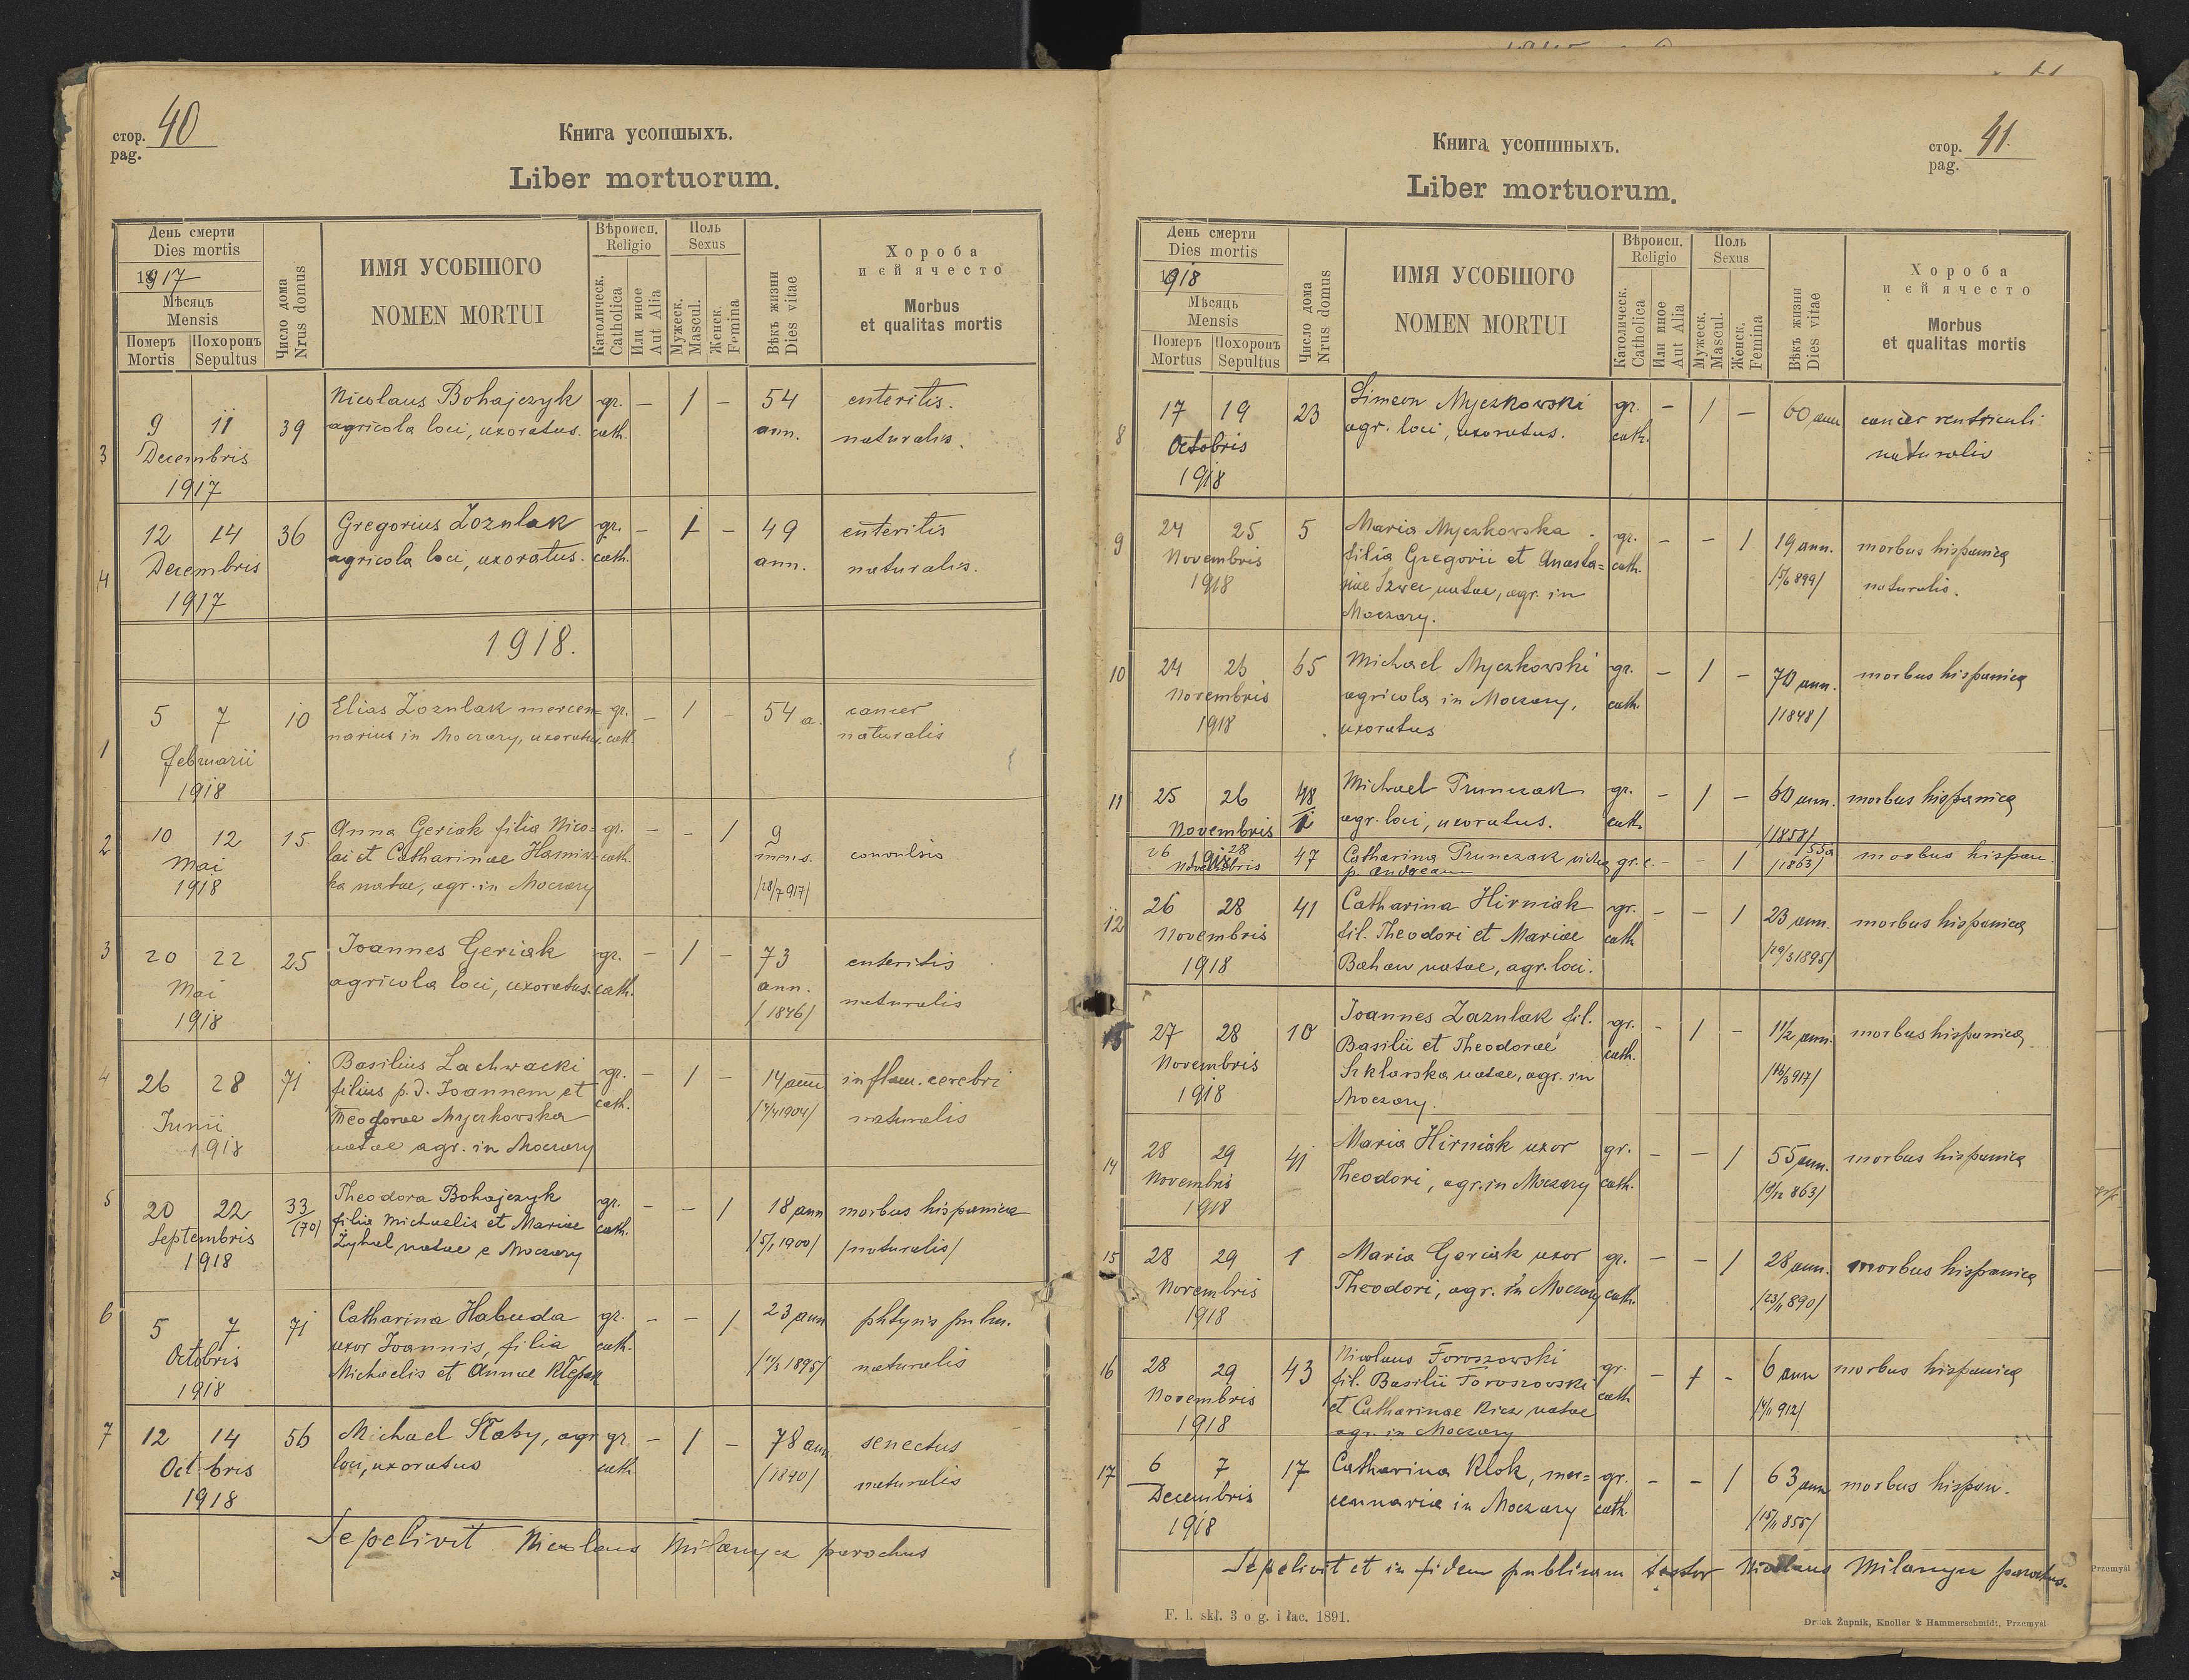 стор. 40
pag.
Книга усопшыхъ.
Liber mortuorum.
День смерти
Dies mortis
1917
Мѣсяцъ
Mensis
Померъ Похоронъ
Mortis Sepultus
Число дома
Nrus domus
ИМЯ УСОБШОГО
NOMEN MORTUI
Вѣроисп.
Religio
Католическ.
Catholica
Или иное
Aut Alia
Поль
Sexus
Мужеск.
Mascul.
Женск.
Femina
Вѣкъ жизни
Dies vitae
Хороба
и єй ячесто
Morbus
et qualitas mortis
3 9 11 Decembris 1917 39
Nicolaus Bohajczyk
agricola loci, uxoratus.
gr. cath. — 1 — 54 ann.
enteritis.
naturalis.
4 12 14 Decembris 1917 36
Gregorius Łoznlak
agricola loci, uxoratus.
gr. cath. — 1 — 49 ann.
enteritis
naturalis.
1918.
1 5 7 februarii 1918 10
Elias Łoznlak mercen=
narius in Moczary, uxoratus,
gr. cath. — 1 — 54 a.
cancer
naturalis
2 10 12 Mai 1918 15
Anna Geriak filia Nico=
lai et Catharinae
ka natae, agr. in Moczary
gr. cath. — — 1 9 mens.
/28/7 917/
convulsio
3 20 22 Mai 1918 25
Joannes Geriak
agricola loci, uxoratus.
gr. cath. — 1 — 73 ann.
/1846/
enteritis
naturalis
4 26 28 Junii 1918 71
Basilius Lachwacki
filius p.d. Joannem et
Theodorae Myczkowska
natae agr. in Moczary
gr. cath. — 1 — 14 ann
inflam. cerebri
naturalis
5 20 22 Septembris 1918 33/(70)
Theodora Bohajczyk
filia Michaelis et Mariae
natae e Moczary
gr. cath. — — 1 18 ann
/5/1 1900/
morbus hispanica
/naturalis/
6 5 7 Octobris 1918 71
Catharina Habuda
uxor Joannis, filia
Michaelis et Annae Klepak
gr. cath. — — 1 23 ann
phtysis pulm.
naturalis
7 12 14 Octobris 1918 56
Michael Słaby, agr.
loci, uxoratus
gr. cath. — 1 — 78 ann.
/1840/
senectus
naturalis
Sepelivit Nicolaus Milanycz parochus
стор. 41.
pag.
Книга усопшныхъ.
Liber mortuorum.
День смерти
Dies mortis
1918
Мѣсяць
Mensis
Померъ Похоронъ
Mortus Sepultus
Число дома
Nrus domus
ИМЯ УСОБШОГО
NOMEN MORTUI
Вѣроисп.
Religio
Католическ.
Catholica
Или иное
Aut Alia
Поль
Sexus
Мужеск.
Mascul.
Женск.
Femina
Вѣкъ жизни
Dies vitae
Хороба
и єй ячесто
Morbus
et qualitas mortis
8 17 19 Octobris 1918 23
Simeon Myczkowski
agr. loci, uxoratus.
gr. cath. — 1 — 60 ann
cancer ventriculi
naturalis
9 24 25 Novembris 1918 5
Maria Myczkowska
filia Gregorii et Anasta=
siae Szwec natae, agr. in
Moczary.
gr. cath. — — 1 19 ann.
/5/6 899/
morbus hispanica
naturalis.
10 24 25 Novembris 1918 65
Michael Myczkowski
agricola in Moczary,
uxoratus
gr. cath. — 1 — 70 ann.
/1848/
morbus hispanica
11 25 26 Novembris 1918 48/1
Michael Prunczak
agr. loci, uxoratus.
gr. cath. — 1 — 60 ann.
/1858/
morbus hispanica
26 28 Novembris 47
Catharina Prunczak vidua
p. Andream
gr. c. — — 1 55a
/1863/
morbus hispan.
12 26 28 Novembris 1918 41
Catharina Hirniak
fil. Theodori et Mariae
Bahan natae, agr. loci.
gr. cath. — — 1 23 ann.
/29/3 1895/
morbus hispanica
13 27 28 Novembris 1918 10
Joannes Łaznlak fil.
Basilii et Theodorae
Szklarska natae, agr. in
Moczary.
gr. cath. — 1 — 1 1/2 ann.
morbus hispanica
14 28 29 Novembris 1918 41
Maria Hirniak uxor
Theodori, agr. in Moczary
gr. cath. — — 1 55 ann.
morbus hispanica
15 28 29 Novembris 1918 1
Maria Geriak uxor
Theodori, agr. in Moczary
gr. cath. — — 1 28 ann.
/23/11 890/
morbus hispanica
16 28 29 Novembris 1918 43
Nicolaus Foroszowski
fil. Basilii Foroszowski
et Catharinae Kicz natae
agr. in Moczary
gr. cath — 1 - 6 ann
morbus hispanica
17 6 7 Decembris 1918 17
Catharina Klok, mer=
cennaria in Moczary
gr. cath. — — 1 63 ann
/15/11 855/
morbus hispan.
Sepelivit et in fidem publicam testor Nicolaus Milanycz parochus.
F. l. skł. 3 o g. i łac. 1891.
Druck Żupnik, Knoller & Hammerschmidt, Przemyśl
Przemyśl